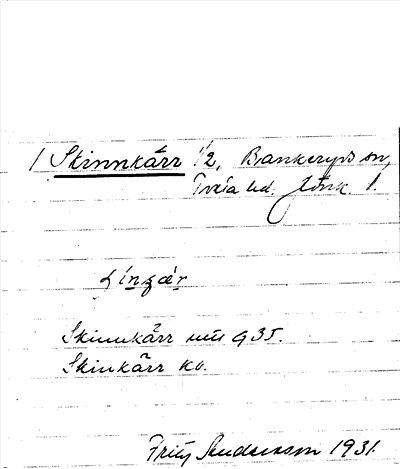 / Skinnkärr 1/2, Bankeryds sn,
Tveta hd. Jönk. l.
Skinnkärr 935.
Skinkärr Ko.
Fritz Andersson 1931.